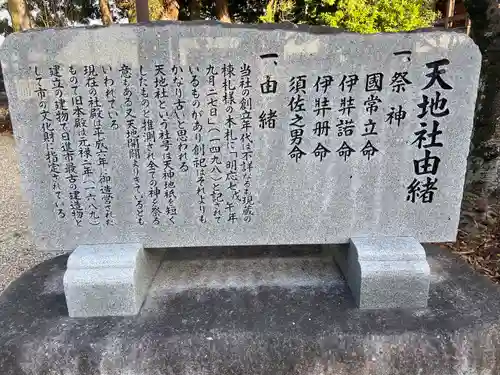 天地社由緒
一、祭神
國常立命
伊弉諾命
伊弉册命
須佐之男命
一、由緒
当社の創立年代は不詳なるも現蔵の
棟札様の木札に「明応七戊午年
九月二七日」(一四九八)と記されて
いるものがあり創祀はそれよりも
かなり古いと思われる
天地社という社号は天神地祇を短く
したものと推測され全ての神々を祭る
意とある又天地開闢よりきているとも
いわれている
現在の社殿は平成六年に御造営された
もので旧本殿は元禄二年(一六八九)
建立の建物で日進市最古の建造物と
して市の文化財に指定されている